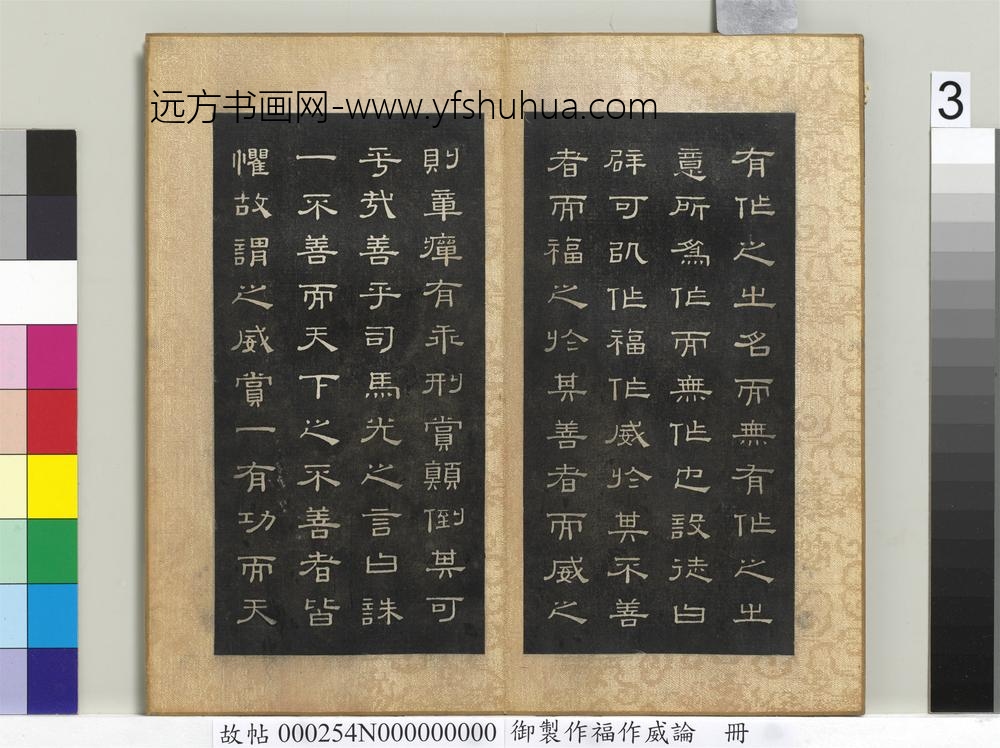 远方书画网-www.yfshuhua.com
3
有作之之名而無有作之之
意所為作而無作也設徒曰
辟可以作福作威於其不善
者而福之於其善者而威之
則章癉有乖刑賞顛倒其可
乎哉善乎司馬光之言曰誅
一不善而天下之不善者皆
懼故謂之威賞一有功而天
故帖 000254N000000000 御製作福作威論 冊